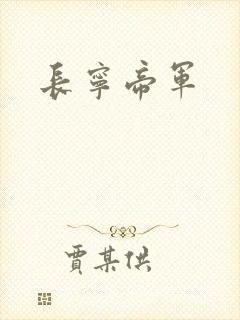 長寧帝軍
賈某供